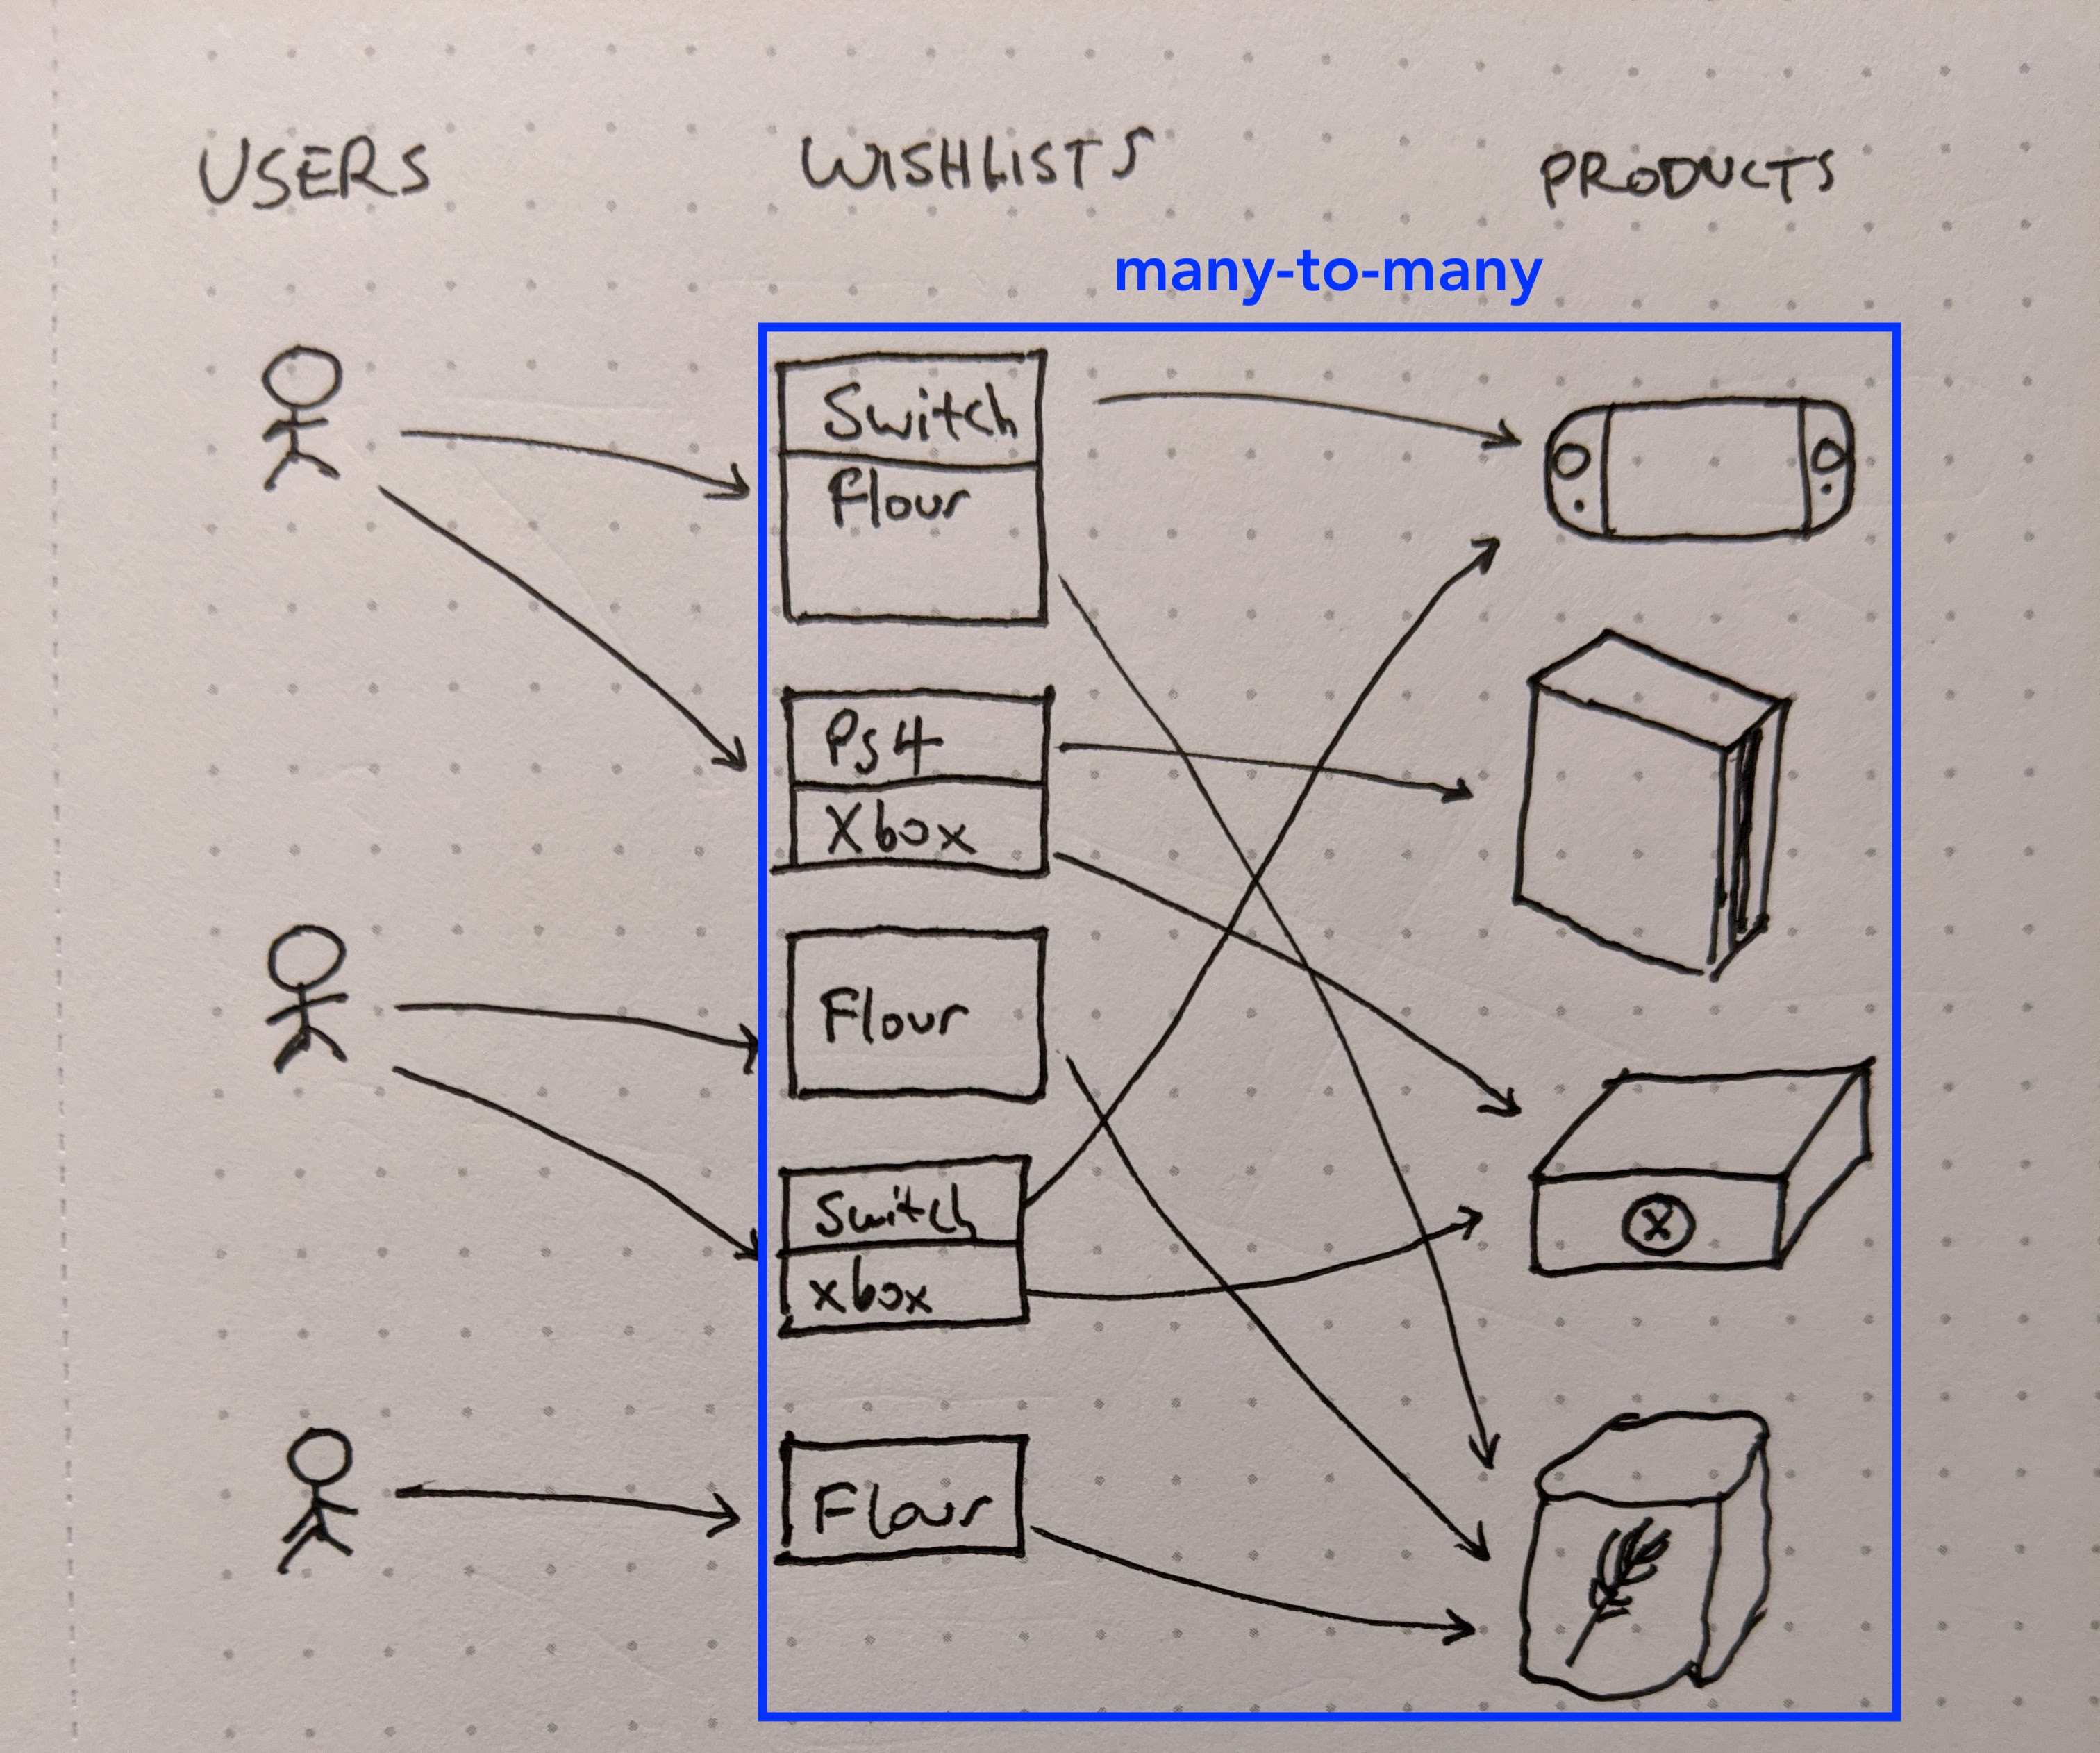 USERS WISHLISTS PRODUCTS
many-to-many
Switch
Flour
Ps4
Xbox
Flour
Switch
xbox
X
Flour